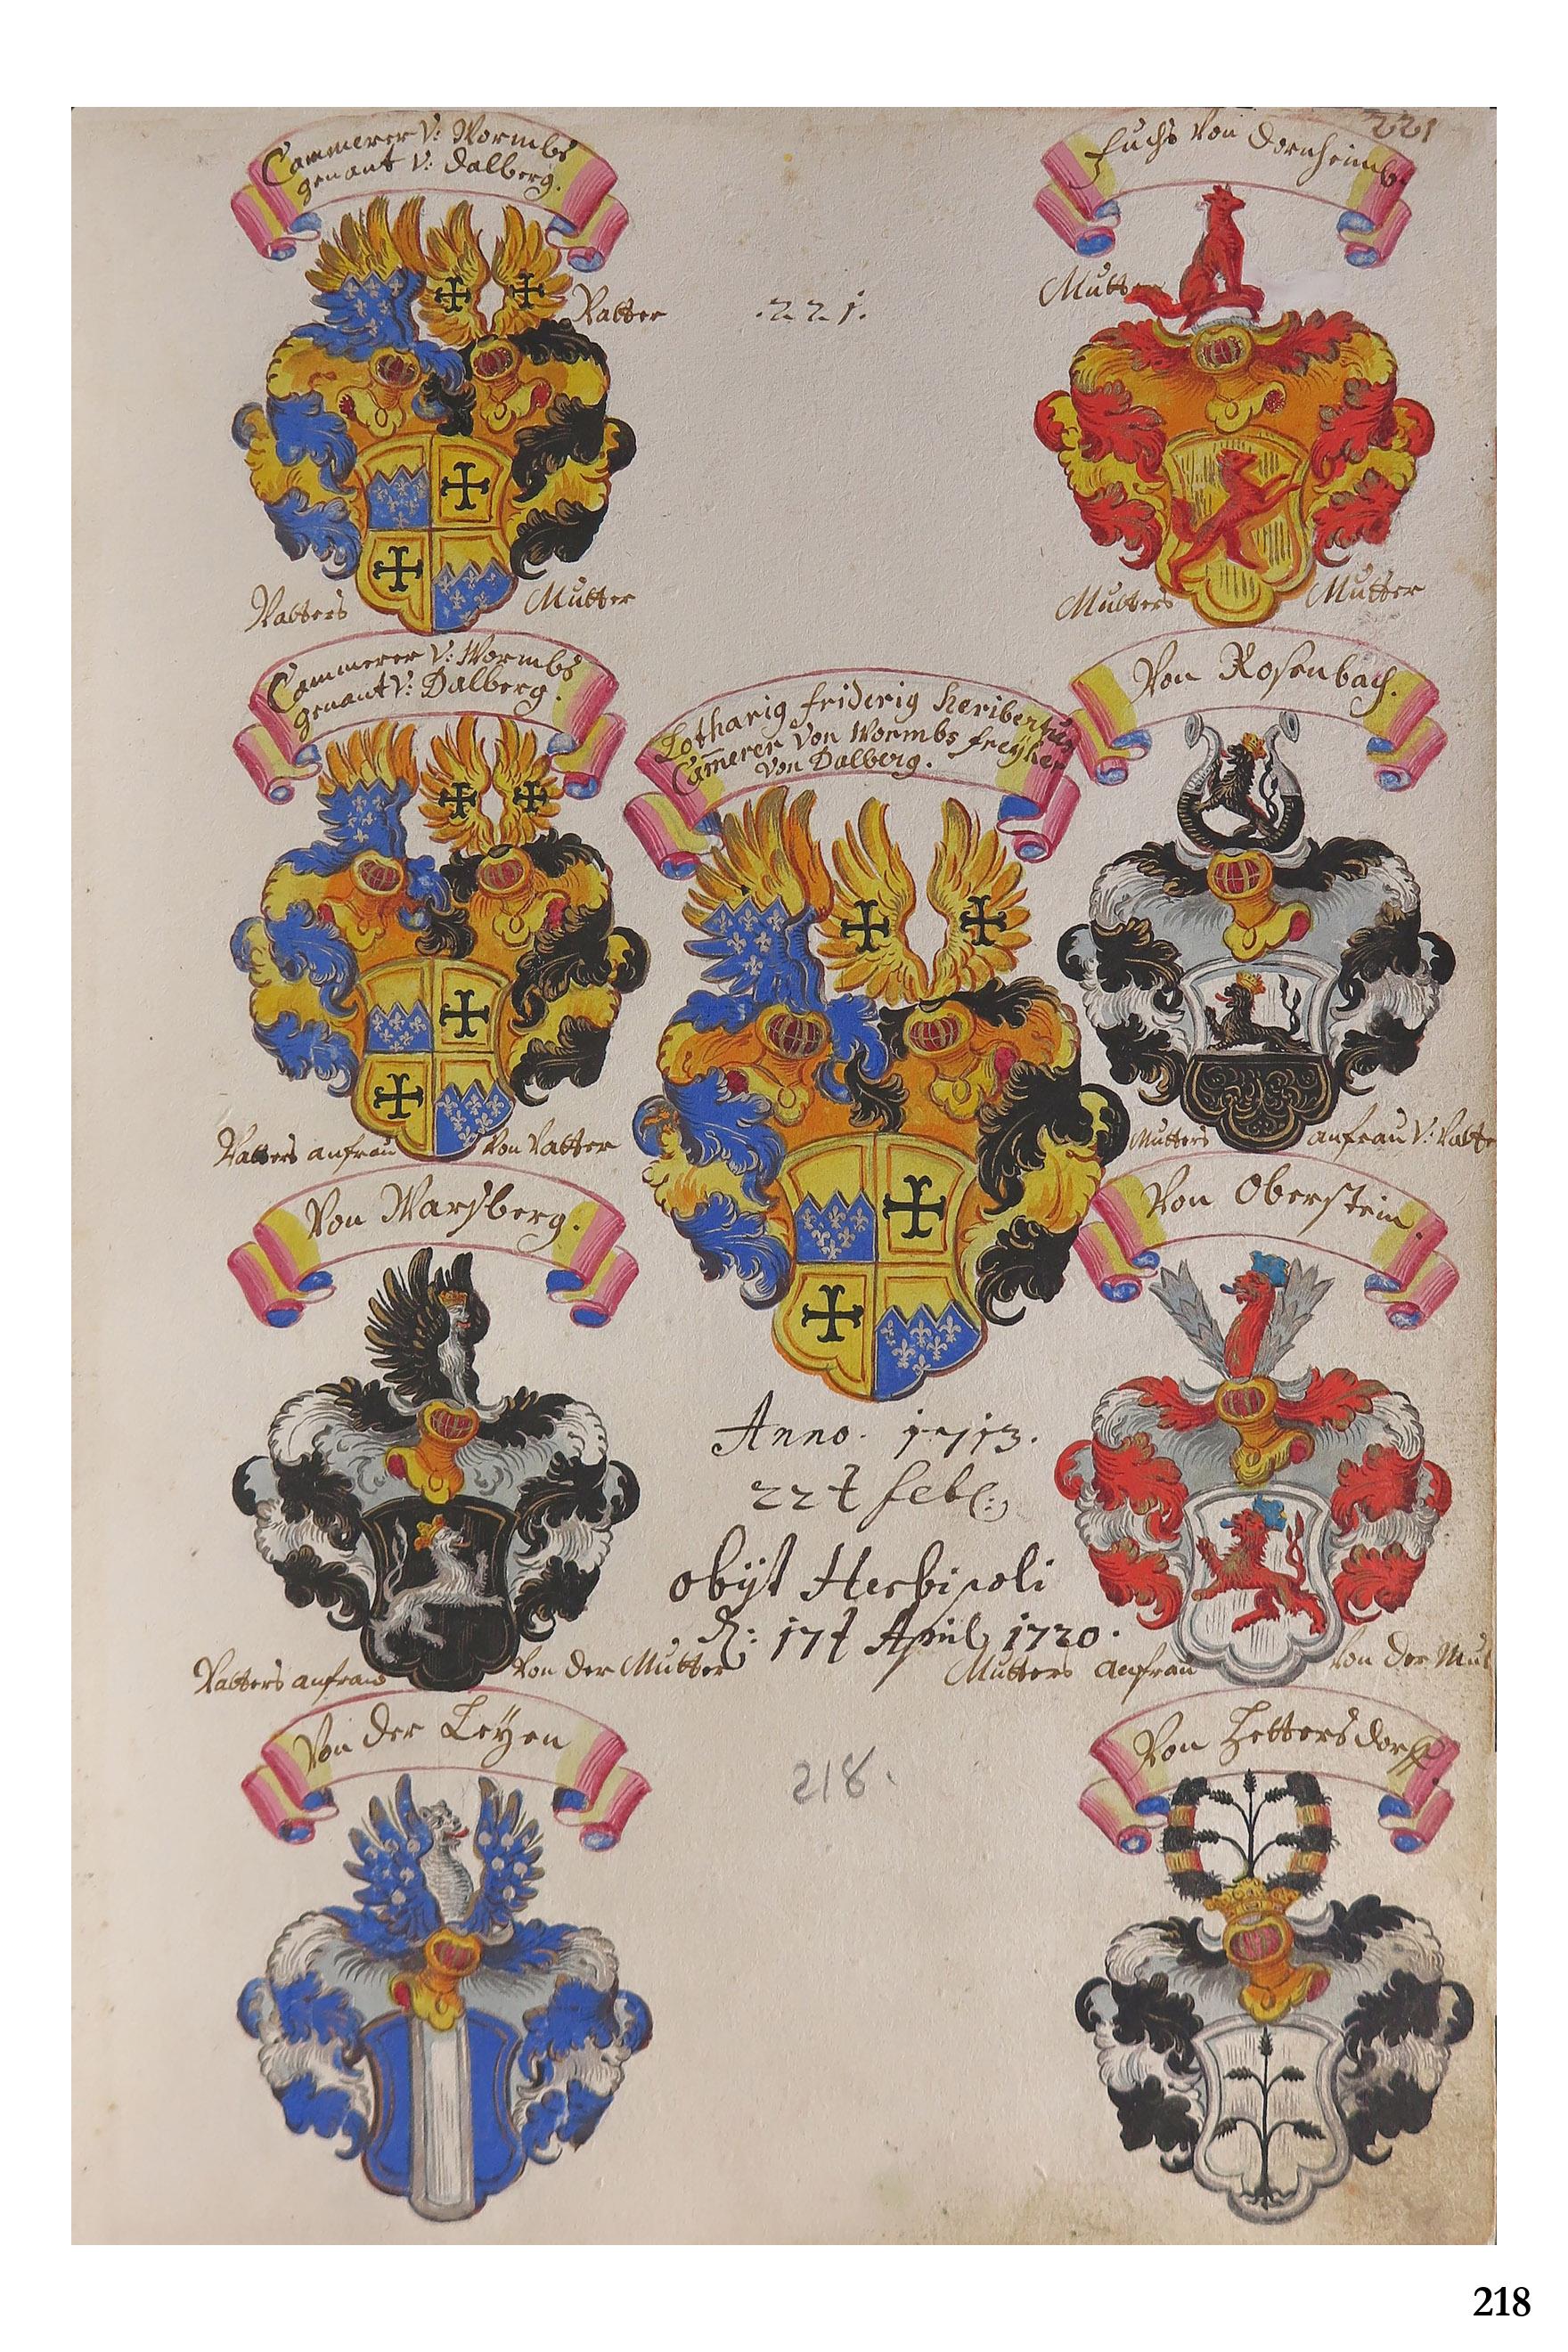 Cammerer V: Wormbs
genant V: Dalberg.
Vatter
.221.
221
Fuchs Von Dornheimb.
Mutter
Vatters Mutter
Mutters Mutter
Cammerer V: Wormbs
genant V: Dalberg.
Lotharig friderig heribertus
Cam̄erer Von Wormbs freyher
Von Dalberg.
Von Rosenbach.
Vatters anfrau Von Vatter
Mutters anfrau V: Vatte
Von Warsberg.
Von Oberstein
Anno. 1713.
22t feb:
obijt Herbipoli
d: 17t April 1720.
Vatters anfrau Von der Mutter
Mutters anfrau Von der Mut
Von der Leyen
218.
Von Hettersdorff.
218